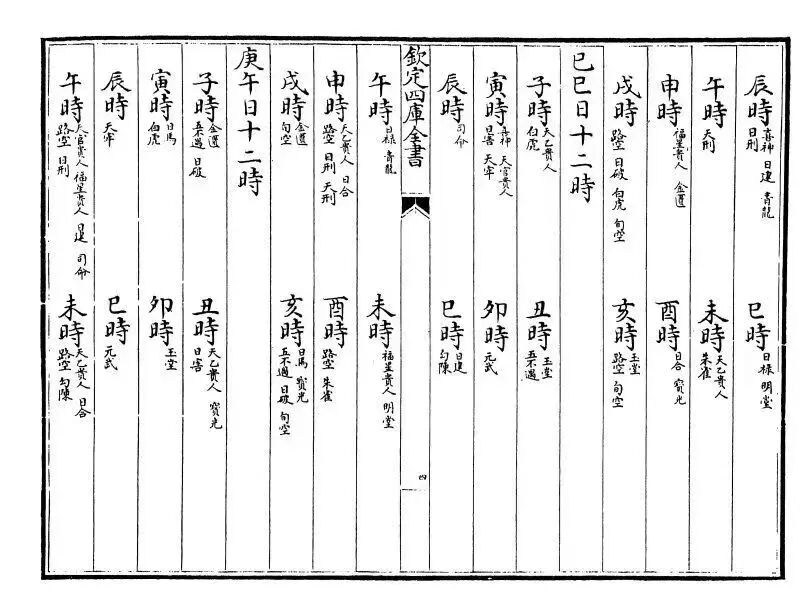 辰時 喜神 日建 青龍 日刑 巳時 日祿 明堂
午時 天刑 未時 天乙貴人 朱雀
申時 福星貴人 金匱 酉時 日合 寶光
戌時 路空 日破 白虎 旬空 亥時 玉堂 路空 旬空
己巳日十二時
子時 天乙貴人 白虎 丑時 玉堂 五不遇
寅時 喜神 天官貴人 日害 天牢 卯時 元武
辰時 司命 巳時 日建 勾陳
欽定四庫全書 四
午時 日祿 青龍 未時 福星貴人 明堂
申時 天乙貴人 日合 路空 日刑 天刑 酉時 路空 朱雀
戌時 金匱 旬空 亥時 日馬 寶光 五不遇 日破 旬空
庚午日十二時
子時 金匱 五不遇 日破 丑時 天乙貴人 寶光 日害
寅時 日馬 白虎 卯時 玉堂
辰時 天牢 巳時 元武
午時 天官貴人 福星貴人 日建 司命 路空 日刑 未時 天乙貴人 日合 路空 勾陳